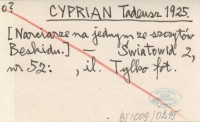 o.?
CYPRIAN Tadeusz 1925.
[Narciarze na jednym ze szczytów
Beskidu.] — Światowid 2,
nr. 52: , il. Tylko fot.